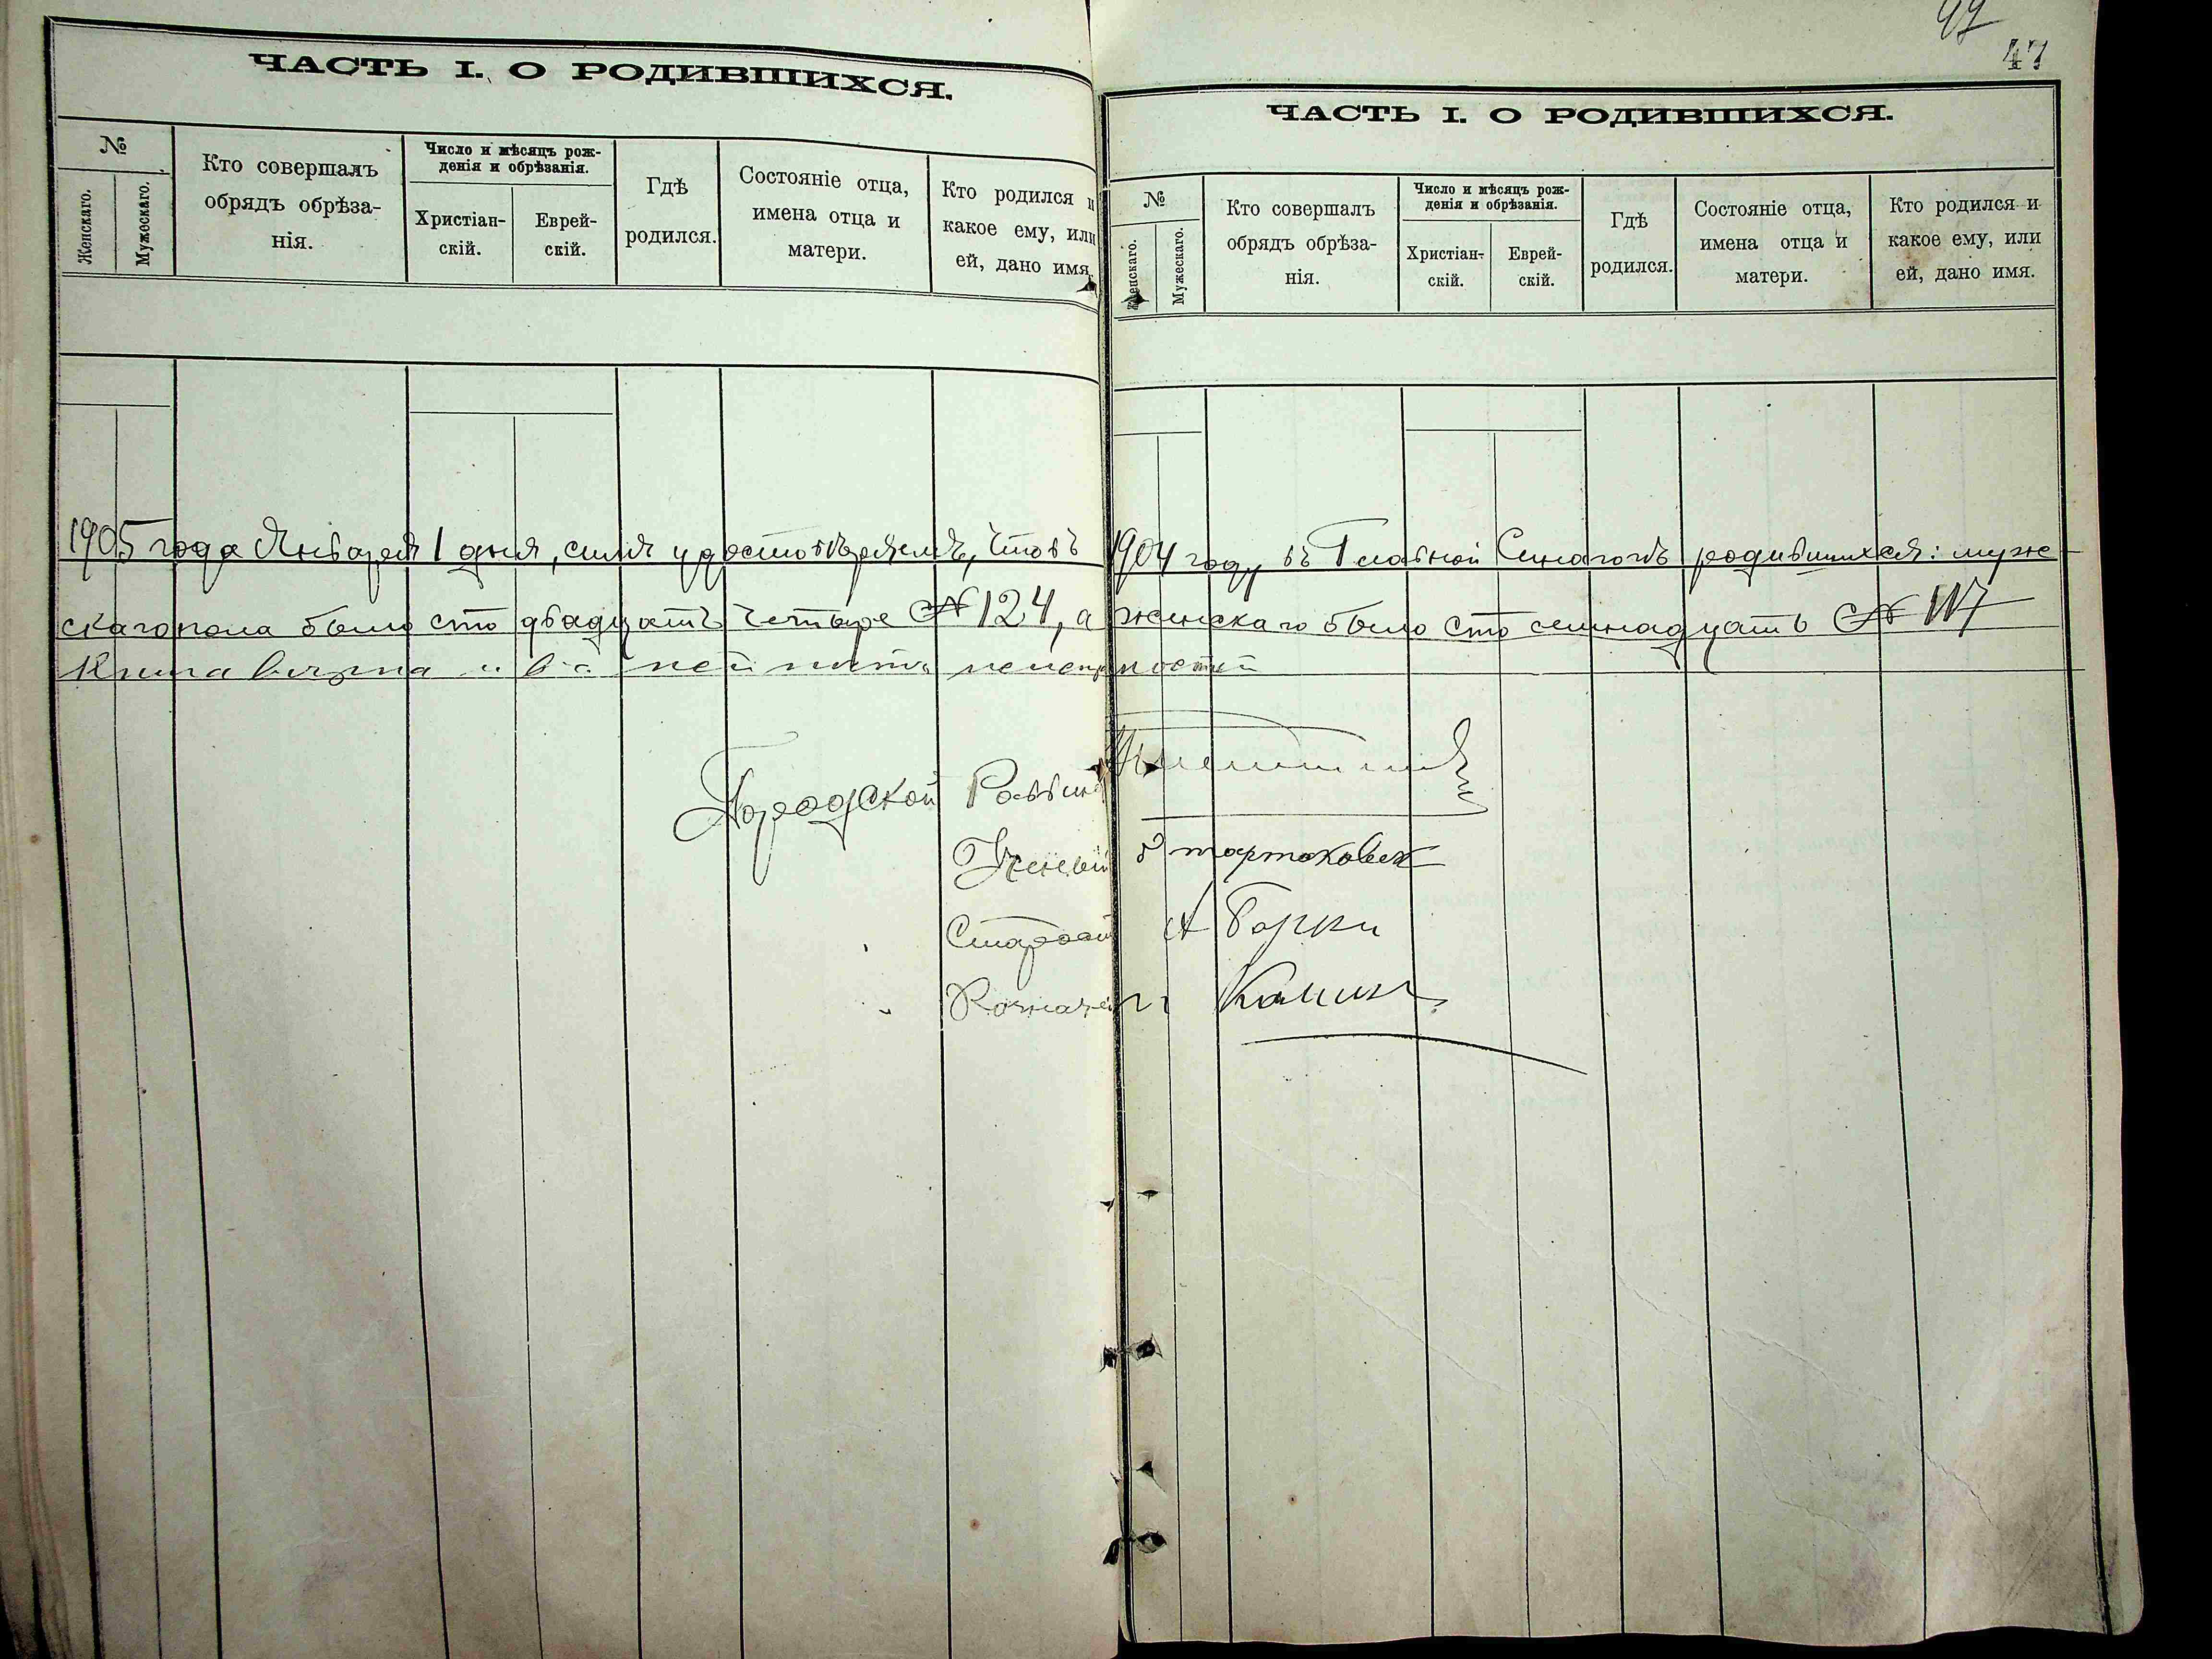 ЧАСТЬ I. О РОДИВШИХСЯ.
№
Женскаго.
Мужескаго.
Кто совершалъ
обрядъ обрѣза-
нія.
Число и мѣсяцъ рож-
денія и обрѣзанія.
Христіан-
скій.
Еврей-
скій.
Гдѣ
родился.
Состояніе отца,
имена отца и
матери.
Кто родился и
какое ему, или
ей, дано имя.
47
47
ЧАСТЬ I. О РОДИВШИХСЯ.
№
Женскаго.
Мужескаго.
Кто совершалъ
обрядъ обрѣза-
нія.
Число и мѣсяцъ рож-
денія и обрѣзанія.
Христіан-
скій.
Еврей-
скій.
Гдѣ
родился.
Состояніе отца,
имена отца и
матери.
Кто родился и
какое ему, или
ей, дано имя.
1905 года Января 1 дня, симъ удостовѣряемъ, что въ 1904 году въ Главной Синагогѣ родившихся: муж
скаго пола было сто двадцать четыре № 124, а женскаго было сто семнадцать № 117
Книга вѣрна и въ ней нѣтъ
Городской Раввинъ
Ученый
Староста
Казначей